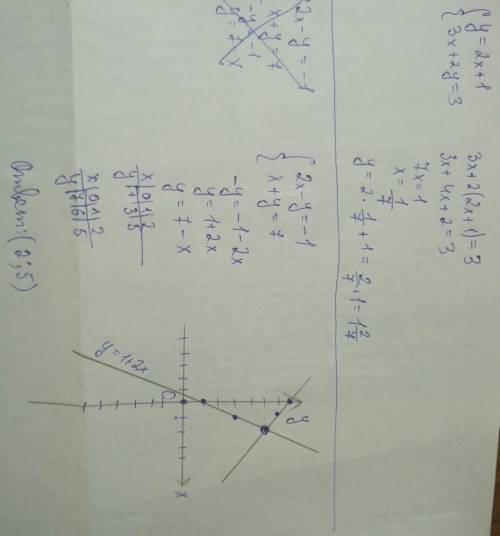 { y = 2x + 1
{ 3x + 2y = 3
3x + 2(2x+1) = 3
3x + 4x + 2 = 3
7x = 1
x = 1/7
y = 2 · 1/7 + 1 = 2/7 + 1 = 1 2/7
2x - y = -1
x + y = 7
-y = -1
y = 7 x
{ 2x - y = -1
{ x + y = 7
-y = -1 - 2x
y = 1 + 2x
y = 7 - x
x | 0 | 1 | 2
y | 1 | 3 | 5
x | 0 | 1 | 2
y | 7 | 6 | 5
Ответ: (2; 5)
y = 1+2x
0
y
x